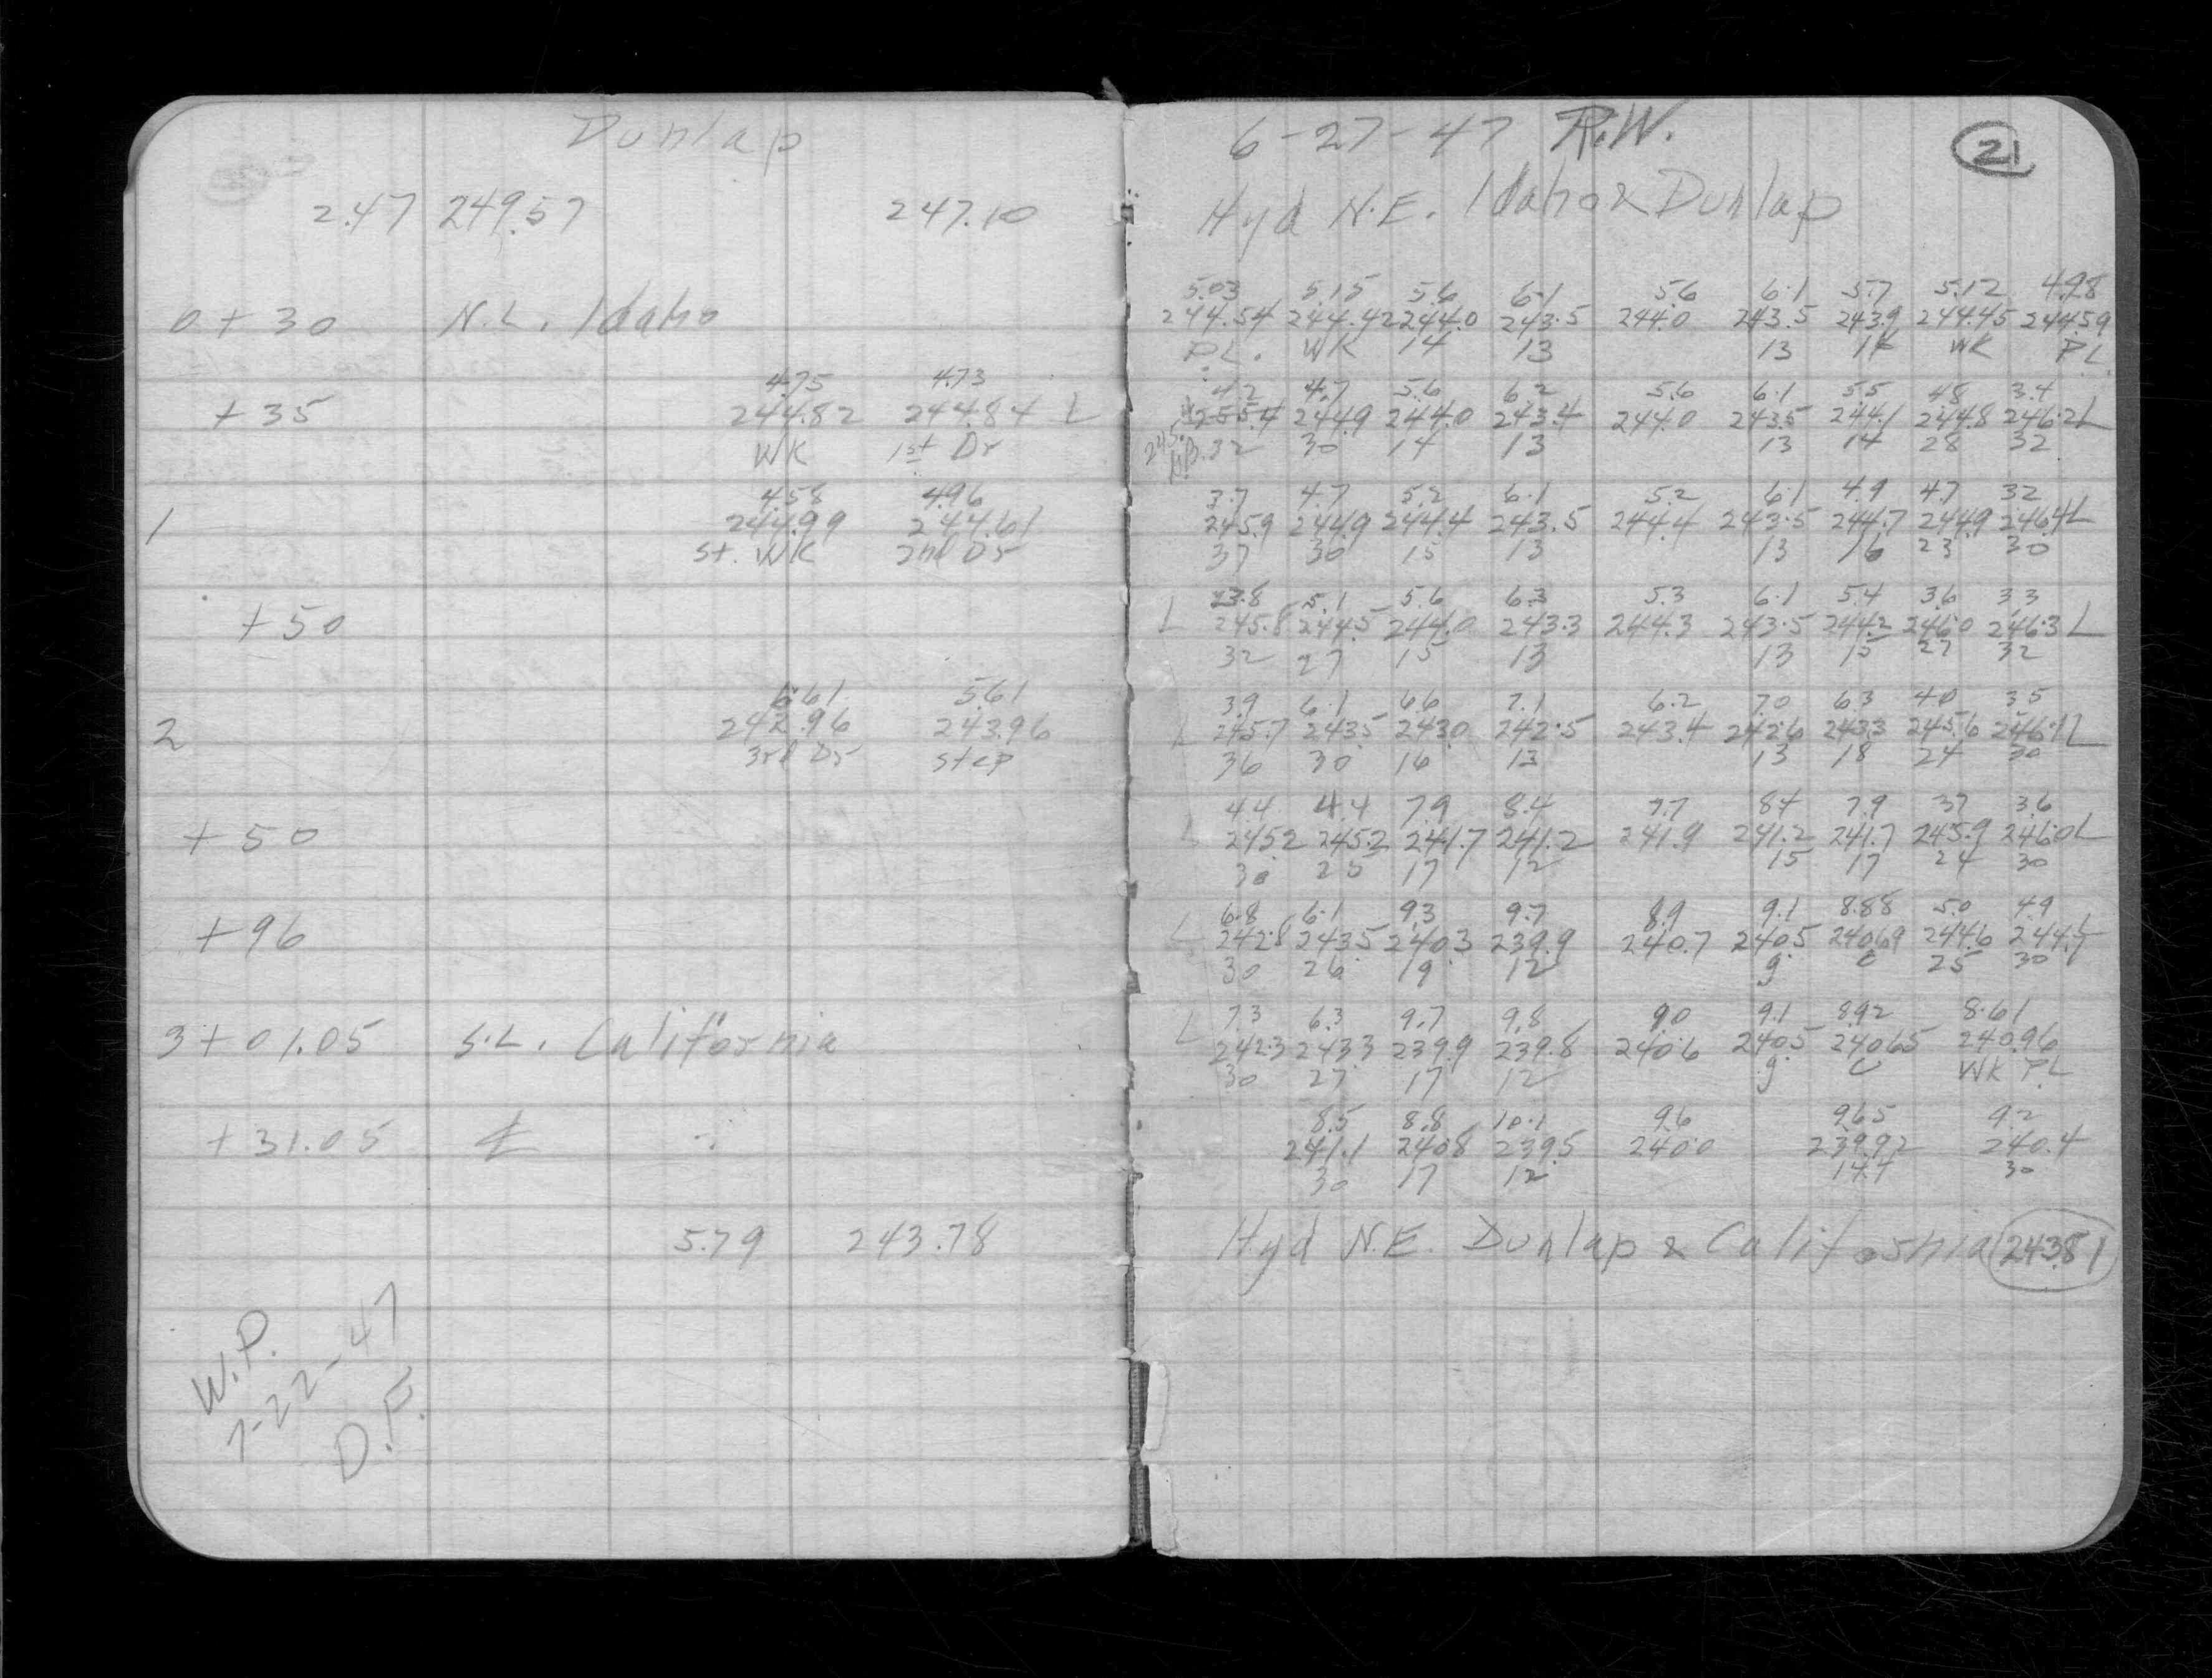 Dunlap
2.47 249.57 247.10
0+30 N.L. Idaho
4.75 4.73
+35 244.82 244.84 L
WK 1st Dr
4.58 4.96
1 244.99 244.61
St. WK 2nd Dr
+50
6.61 5.61
2 242.96 243.96
3rd Dr step
+50
+96
3+01.05 S.L. California
+31.05 ℄
5.79 243.78
W.P.
7-22-47
D.F.
6-27-47 R.W. 21
Hyd N.E. Idaho & Dunlap
5.03 5.15 5.6 6.1 5.6 6.1 5.7 5.12 4.98
244.54 244.42 244.0 243.5 244.0 243.5 243.9 244.45 244.59
P.L. WK 14 13 13 14 WK P.L.
4.2 4.7 5.6 6.2 5.6 6.1 5.5 4.8 3.4
255.4 244.9 244.0 243.4 244.0 243.5 244.1 244.8 246.2 L
32 30 14 13 13 14 28 32
3.7 4.7 5.2 6.1 5.2 6.1 4.9 4.7 3.2
245.9 244.9 244.4 243.5 244.4 243.5 244.7 244.9 246.4 L
37 30 15 13 13 16 23 30
3.8 5.1 5.6 6.3 5.3 6.1 5.4 3.6 3.3
L 245.8 244.5 244.0 243.3 244.3 243.5 244.2 246.0 246.3 L
32 27 15 13 13 15 27 32
3.9 6.1 6.6 7.1 6.2 7.0 6.3 4.0 3.5
L 245.7 243.5 243.0 242.5 243.4 242.6 243.3 245.6 246.1 L
36 30 16 13 13 18 24 30
4.4 4.4 7.9 8.4 7.7 8.4 7.9 3.7 3.6
L 245.2 245.2 241.7 241.2 241.9 241.2 241.7 245.9 246.0 L
30 25 17 12 15 17 24 30
6.8 6.1 9.3 9.7 8.9 9.1 8.88 5.0 4.9
L 242.8 243.5 240.3 239.9 240.7 240.5 240.69 244.6 244.7 L
30 26 19 12 g c 25 30
7.3 6.3 9.7 9.8 9.0 9.1 8.92 8.61
L 242.3 243.3 239.9 239.8 240.6 240.5 240.65 240.96
30 27 17 12 g c WK PL
8.5 8.8 10.1 9.6 9.65 9.2
241.1 240.8 239.5 240.0 239.92 240.4
30 17 12 14.4 30
Hyd N.E. Dunlap & California 243.81